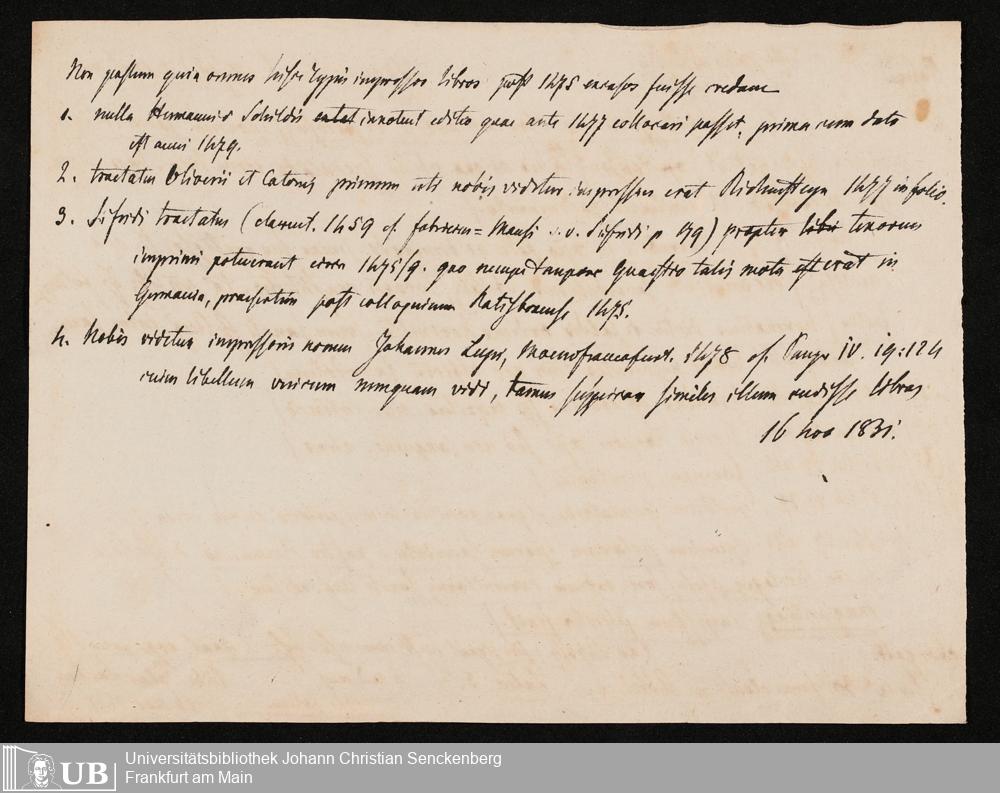 Non possum quin omnes hisce typis impressos libros post 1475 excusos fuisse credam
1. nulla Hermanni Schildis extat innotuit editio quae ante 1477 collocari posset, prima cum dato
est anni 1479.
2. tractatus Oliverii et Catonis primum uti nobis videtur impressus erat 1477 in folio.
3. Sifridi tractatus (claruit. 1459 cf. Mansi s. v. Sifridi p ) propter libri tenorem
imprimi potuerant circa 1475/9. quo tempore Quaestio talis mota est erat in
Germania, praesertim post colloquium Ratisbonense 1475.
4. Nobis videtur impressoris nomen Johannes Lupi, 1478 cf. Panzer IV. 19:124
cuius libellum unicum nunquam vidi, tamen suspicor similes illum edidisse libros
16 nov 1831.
Universitätsbibliothek Johann Christian Senckenberg
Frankfurt am Main
UB